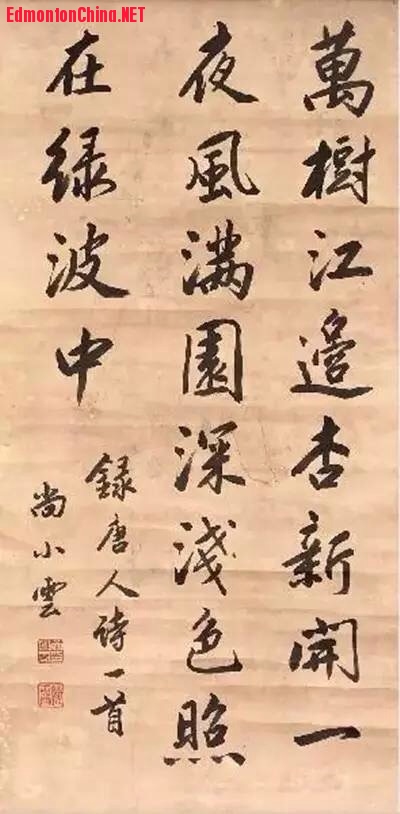 EdmontonChina.NET
萬樹江邊杏新開一
夜風滿園深淺色照
在緑波中
録唐人诗一首
尚小雲